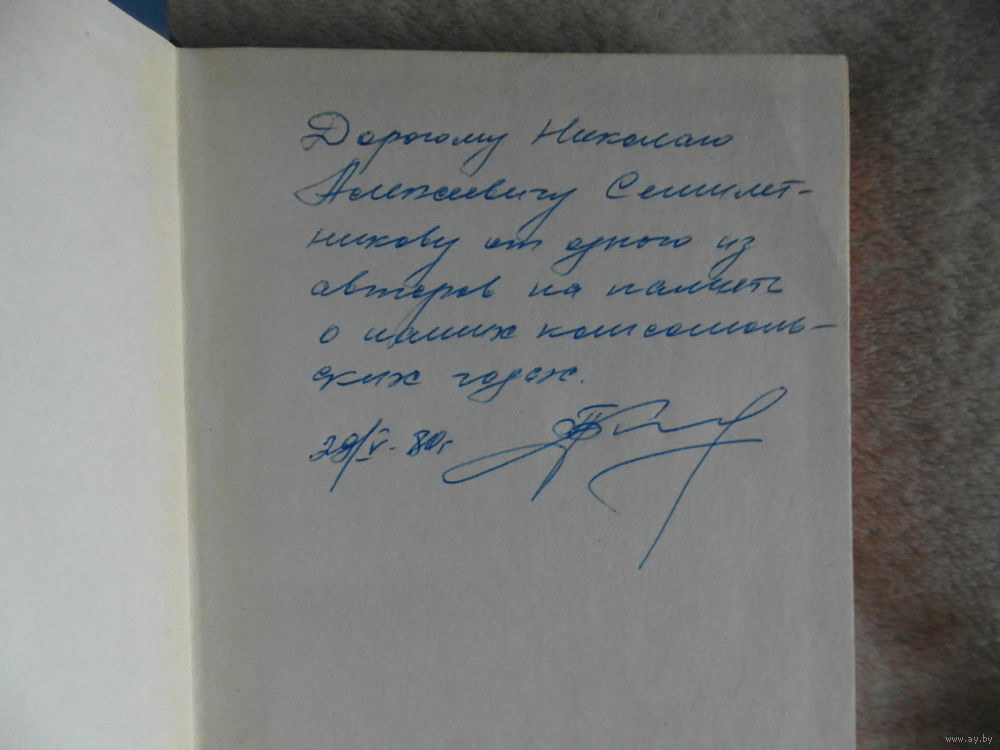 Дорогому Николаю
Алексеевичу Семилет-
никову от одного из
авторов на память
о наших комсомоль-
ских годах.
29/V-80г
www.ay.by